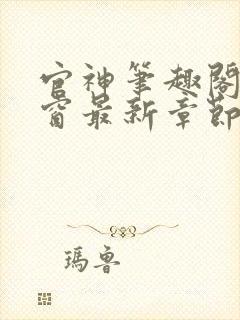 官神筆趣閣
窗最新章節
瑪魯